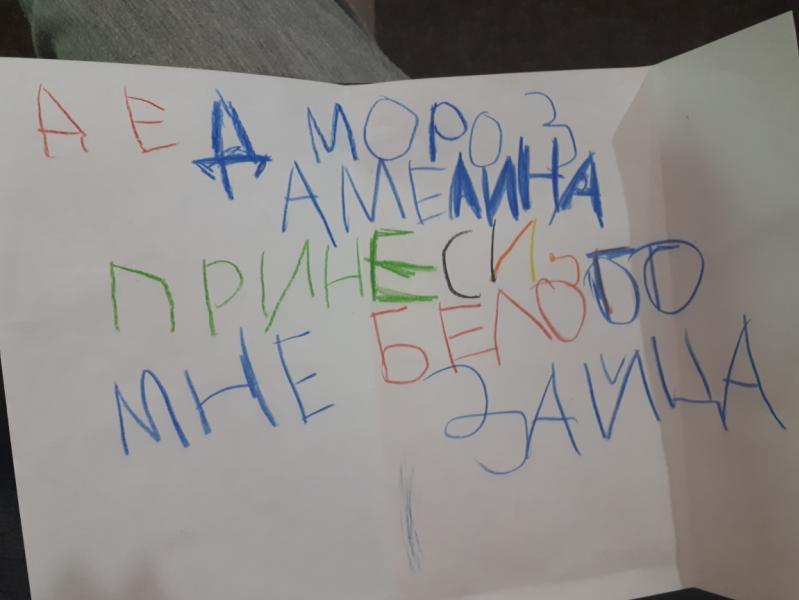 ДЕД МОРОЗ
АМЕЛИНА
ПРИНЕСИ
МНЕ БЕЛОБО
ЗАЙЦА